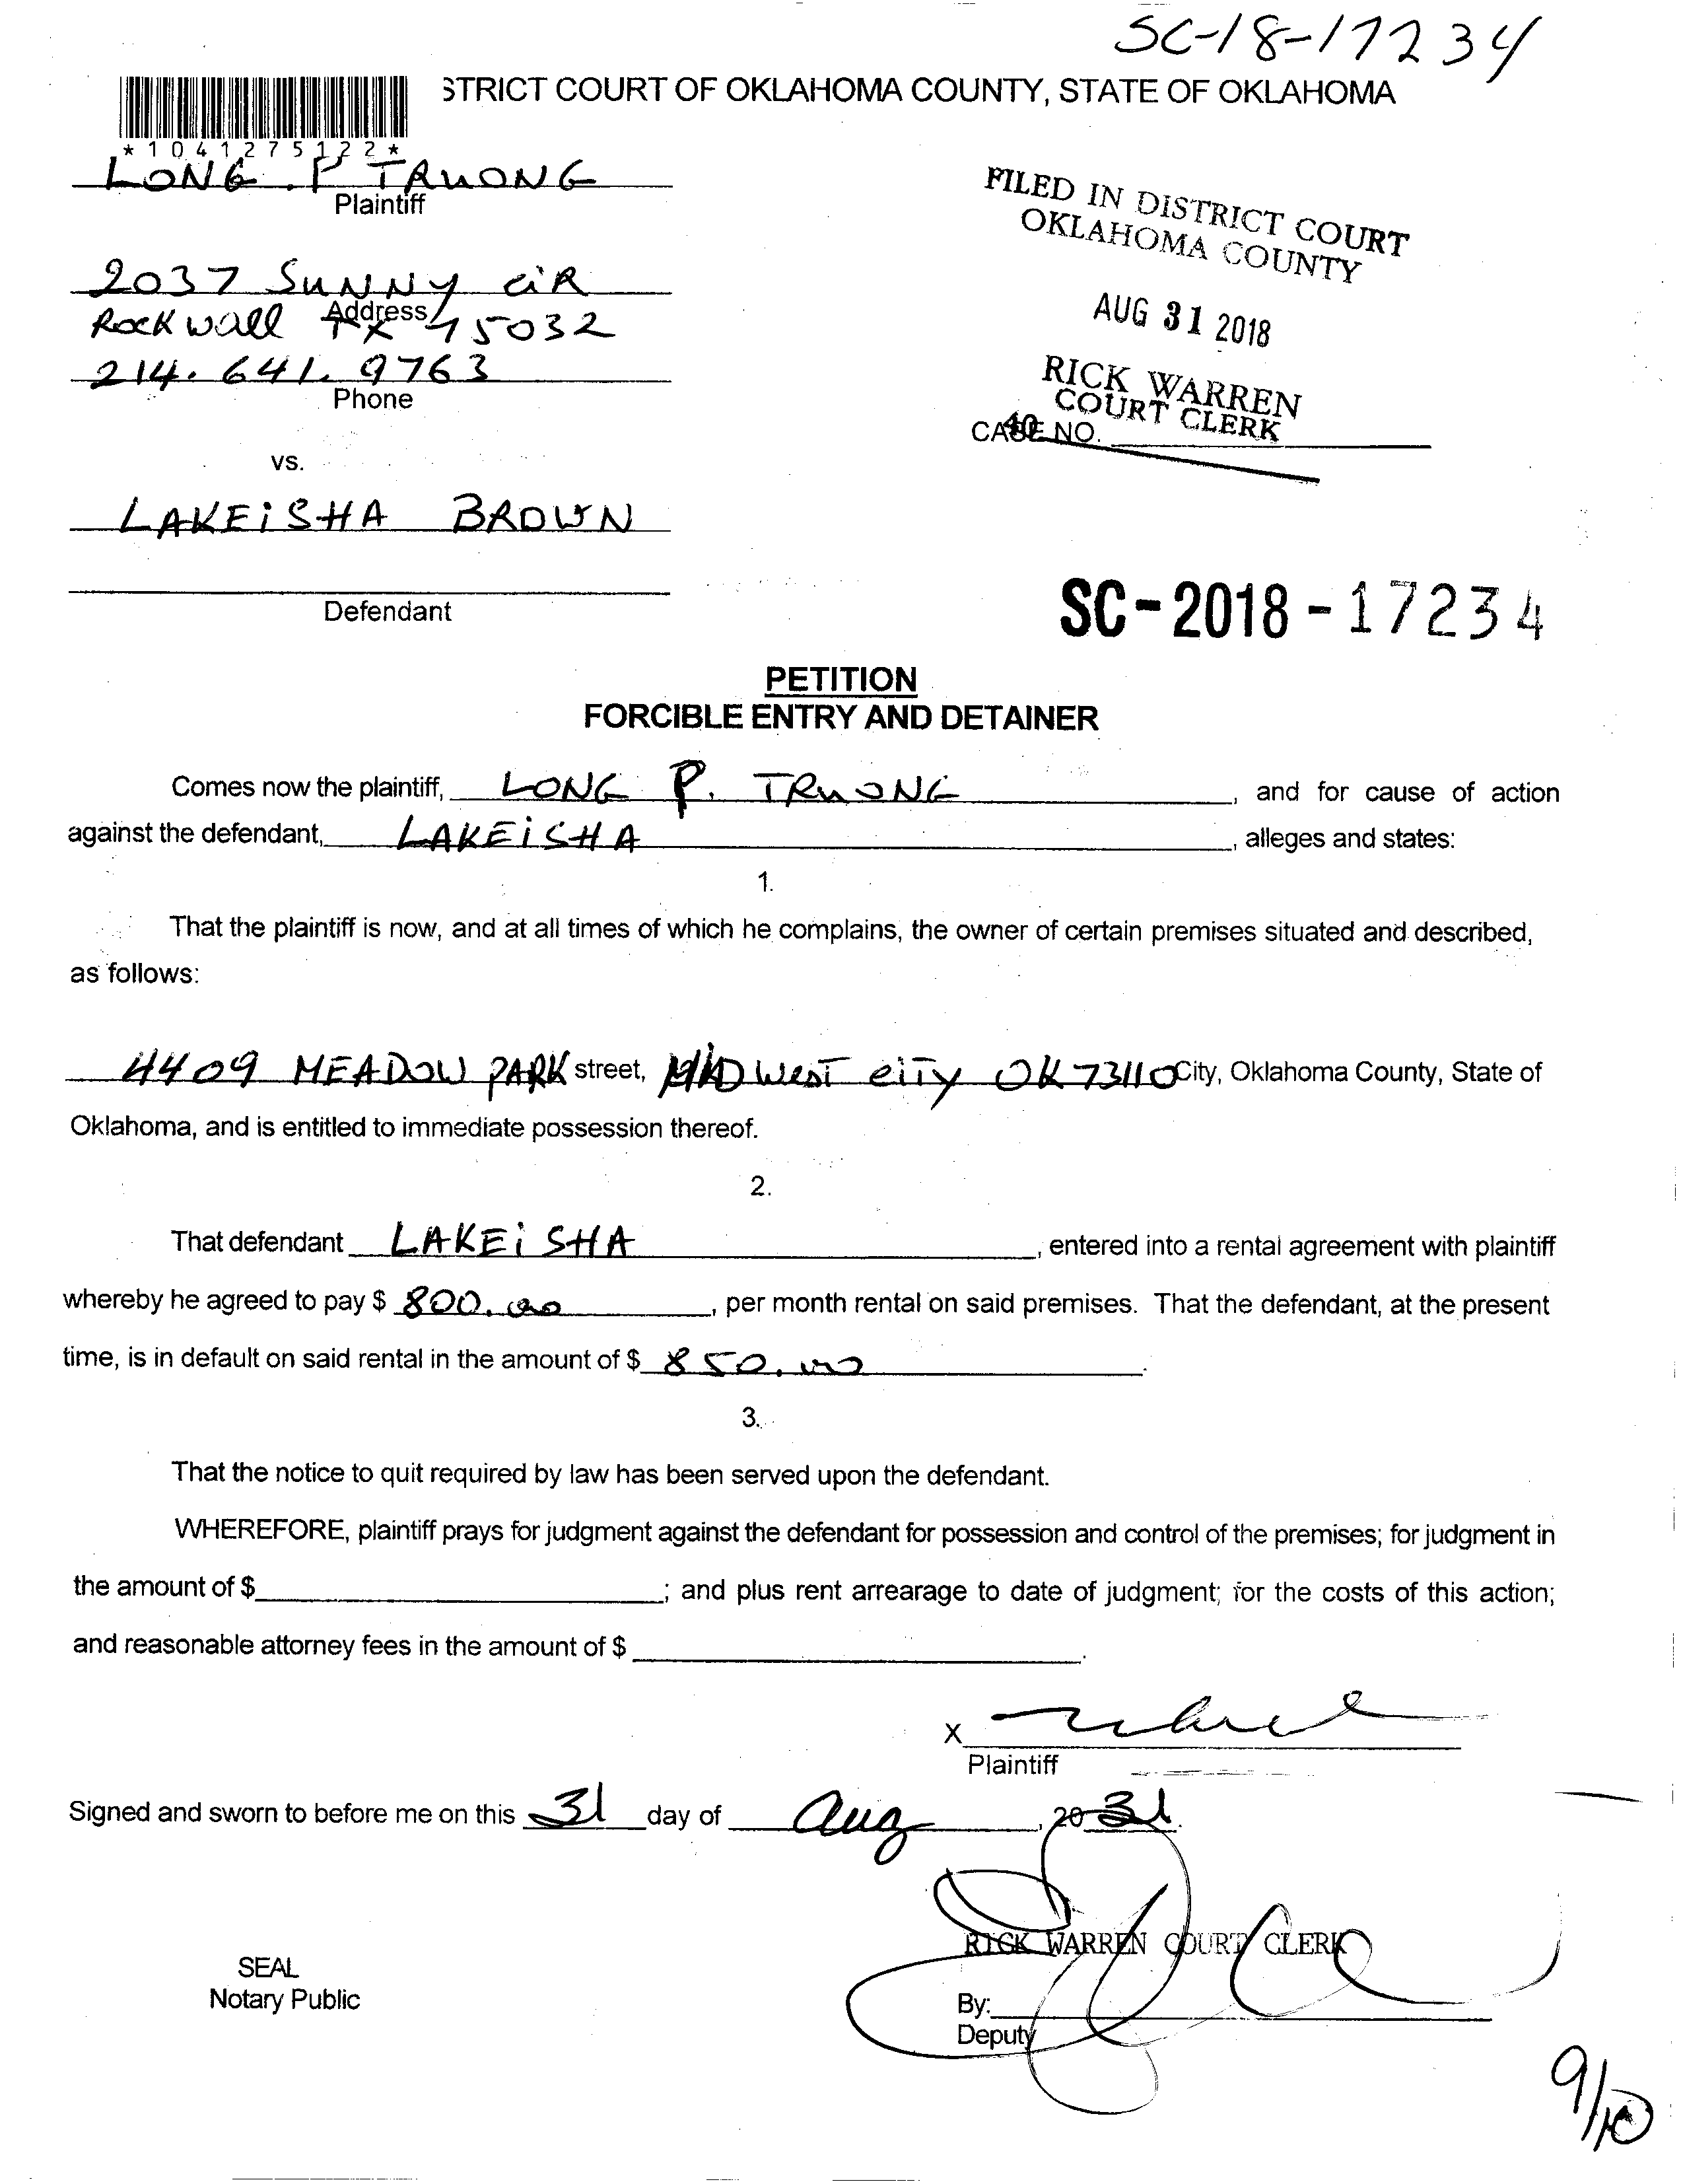 SC-18-17234
STRICT COURT OF OKLAHOMA COUNTY, STATE OF OKLAHOMA
*1041275122*
LONG P TRUONG
Plaintiff
FILED IN DISTRICT COURT
OKLAHOMA COUNTY
AUG 31 2018
RICK WARREN
COURT CLERK
40
CASE NO.
2037 SUNNY CIR
Address
Rockwall TX 75032
214. 641. 9763
Phone
vs.
LAKEiSHA BROWN
Defendant
SC-2018-17234
PETITION
FORCIBLE ENTRY AND DETAINER
Comes now the plaintiff, LONG P. TRUONG, and for cause of action
against the defendant, LAKEiSHA, alleges and states:
1.
That the plaintiff is now, and at all times of which he complains, the owner of certain premises situated and described,
as follows:
4409 MEADOW PARK street, MIDWEST CITY OK 73110 City, Oklahoma County, State of
Oklahoma, and is entitled to immediate possession thereof.
2.
That defendant LAKEiSHA, entered into a rental agreement with plaintiff
whereby he agreed to pay $ 800.00, per month rental on said premises. That the defendant, at the present
time, is in default on said rental in the amount of $ 850.00.
3.
That the notice to quit required by law has been served upon the defendant.
WHEREFORE, plaintiff prays for judgment against the defendant for possession and control of the premises; for judgment in
the amount of $; and plus rent arrearage to date of judgment; for the costs of this action;
and reasonable attorney fees in the amount of $.
X
Plaintiff
Signed and sworn to before me on this 31 day of Aug, 20 31.
RICK WARREN COURT CLERK
SEAL
Notary Public
By:
Deputy
9/10